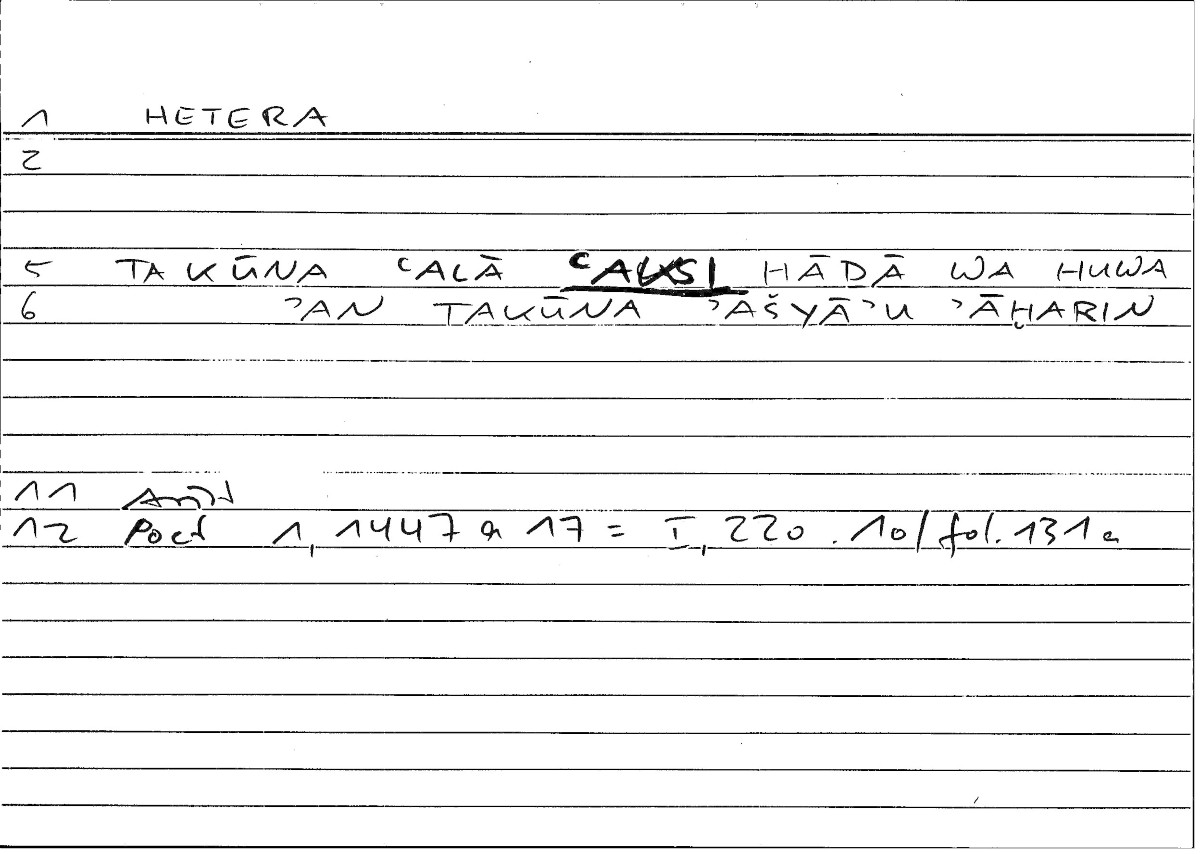 1 HETERA
2
5 TAKŪNA ʿALĀ ʿAKSI HĀDĀ WA HUWA
6 ʾAN TAKŪNA ʾAŠYĀʾU ʾĀḪARIN
11 Arist
12 Poet 1, 1447 a 17 = I, 220.10/fol. 131a